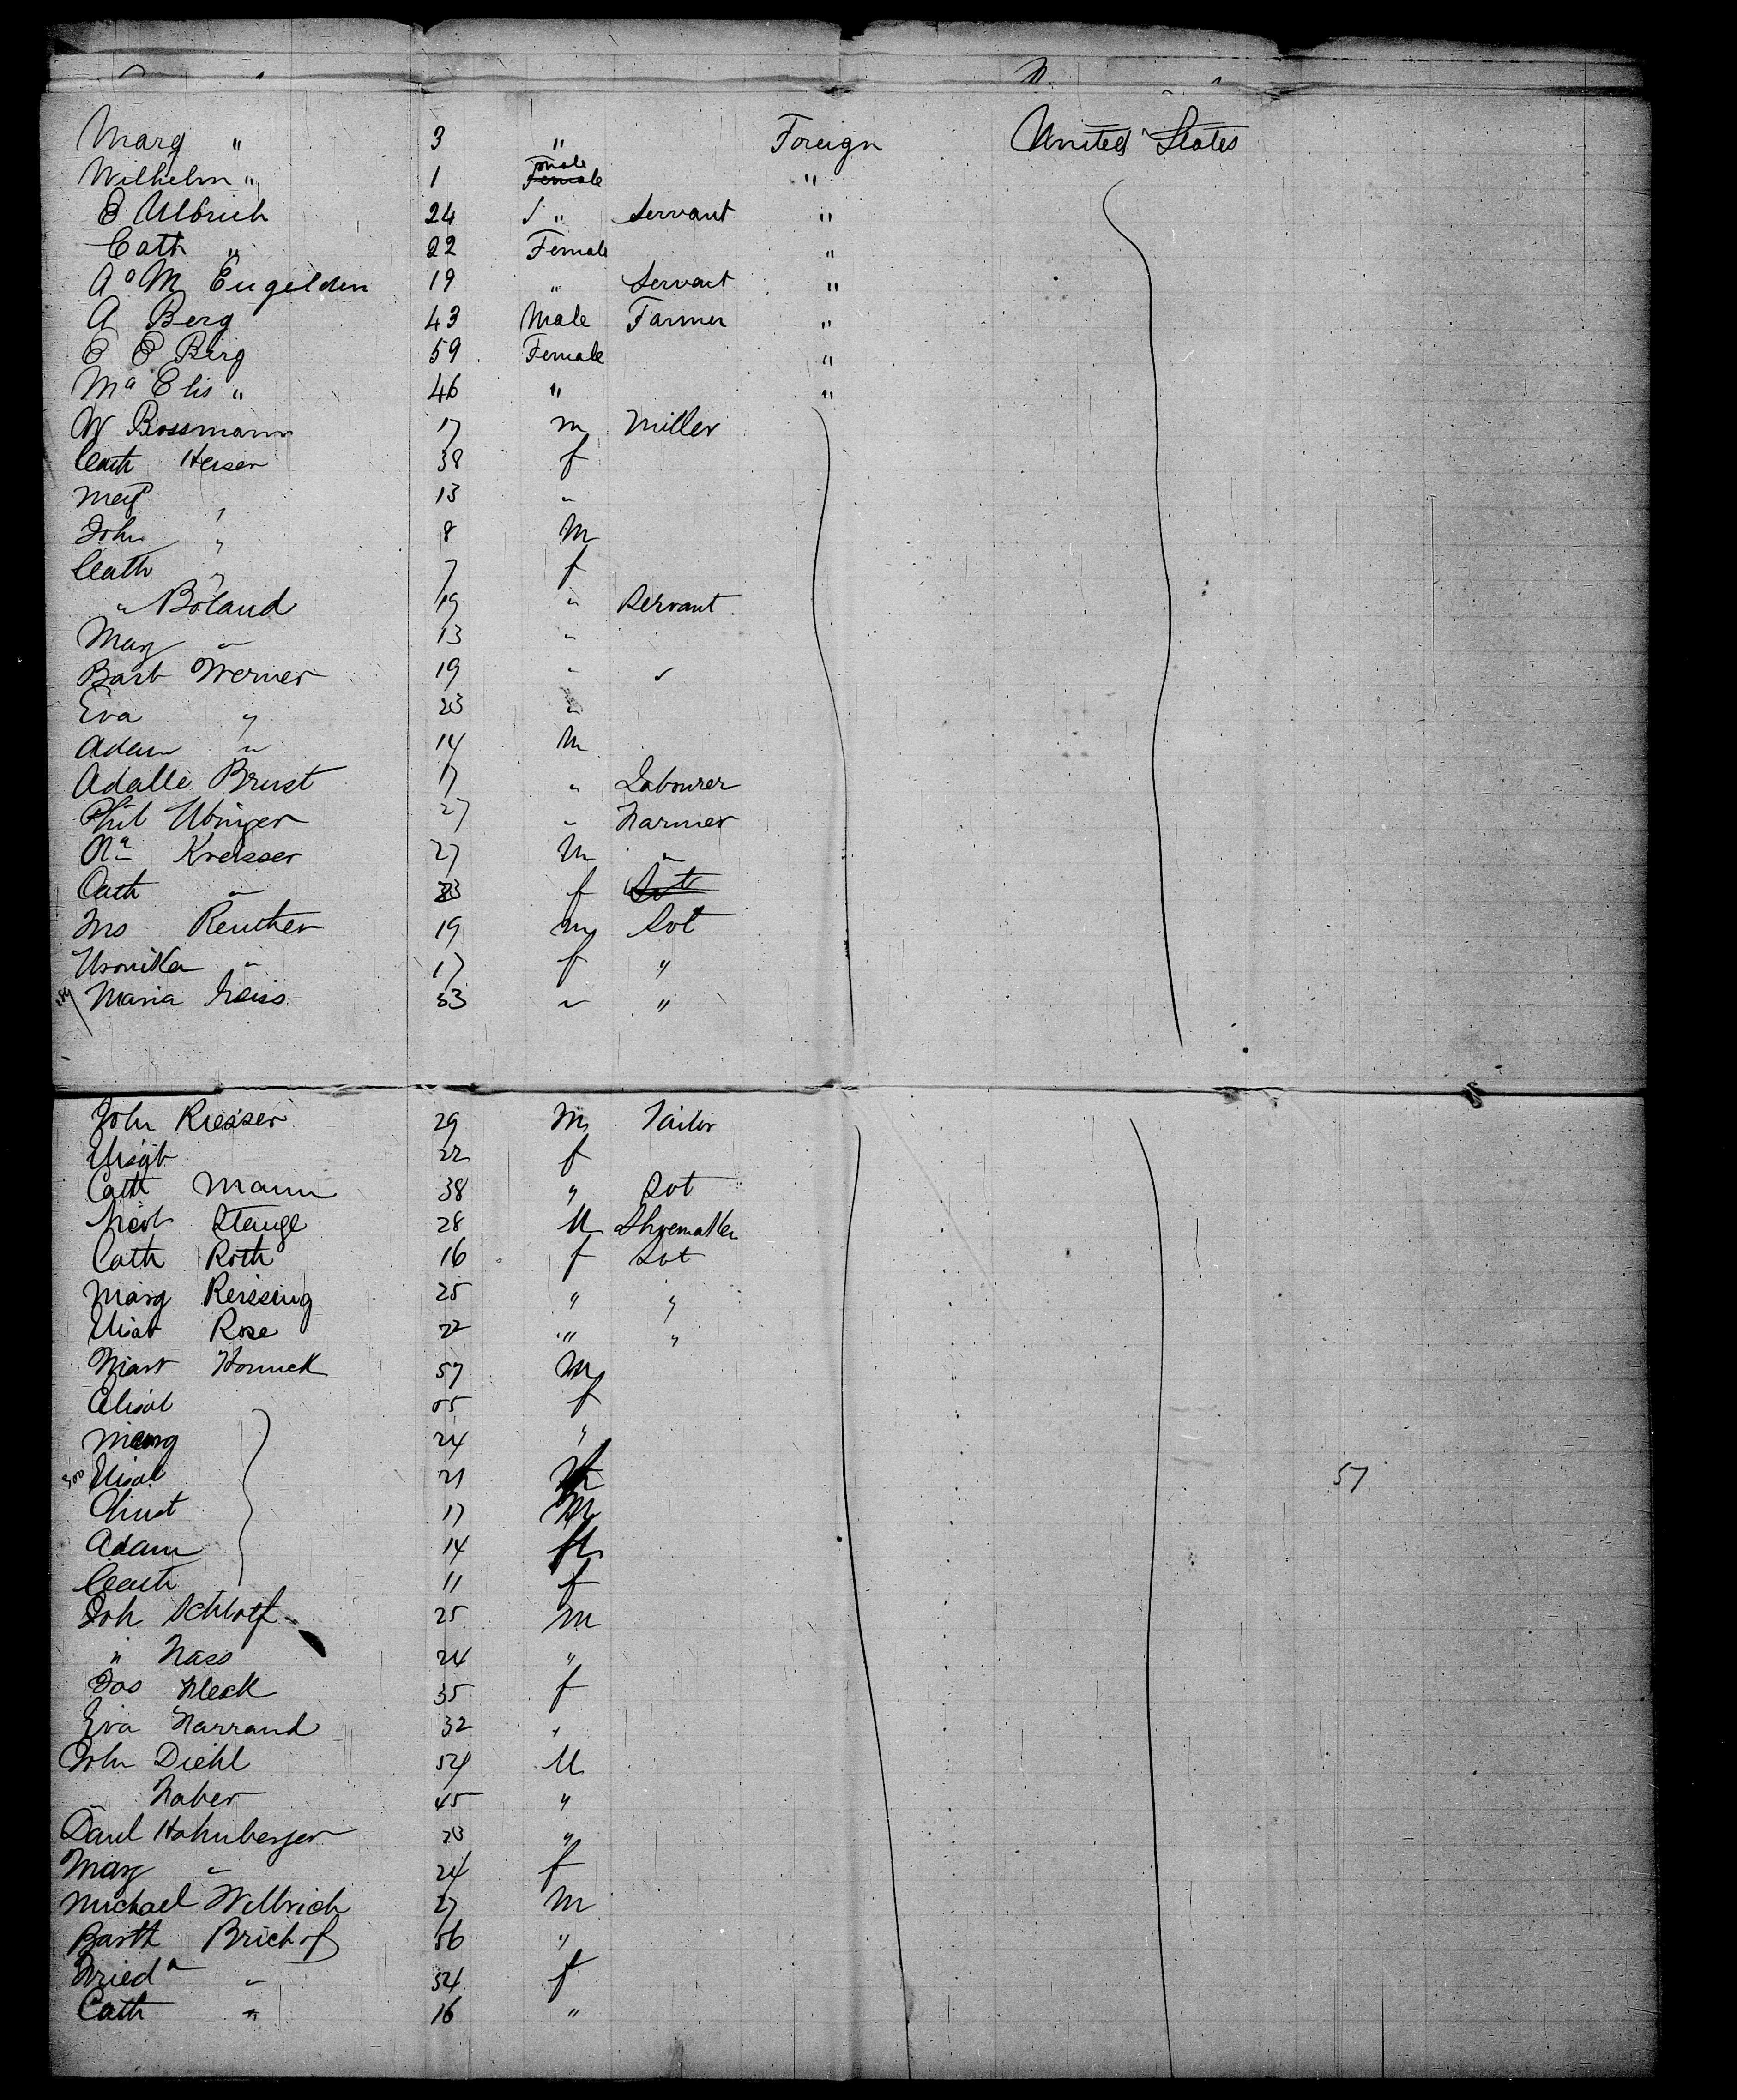 Marg " 3 " Foreign United States
Wilhelm " 1 male Female "
E Ulbrich 24 " Servant "
Cath " 22 Female "
Aº M Engelden 19 " Servant "
A Berg 43 Male Farmer "
C E Berg 59 Female "
Mª Elis " 46 " "
W Bossmann 17 m Miller
Cath Heiser 38 f
Marg " 13 "
John " 8 M
Cath " 7 f
" Boland 19 " Servant
Marg " 13 "
Barb Werner 19 " "
Eva " 23 "
Adam " 14 M
Adalle Brust 17 " Labourer
Phil Ubinger 27 " Farmer
Kreisser 27 M "
Cath " 33 f
Reuther 19 m Svt
" 17 f "
Maria Geiss 53 " "
John Riesser 29 M Tailor
Elisab 22 f
Cath Mann 38 " Svt
Nicol Stengl 28 M Shoemaker
Cath Roth 16 f Svt
Marg Reissing 25 " "
Elisab Rose 22 " "
Mart Hornick 57 M
Elisab 55 f
Marg 24 "
300 Elisab 21 f 57
Christ 17 M
Adam 14 M
Cath 11 f
Joh Schlott 25 M
" Nass 24 "
Fleck 35 f
Eva Farrand 32 "
John Diehl 54 M
" Faber 45 "
Daul Hohnberger 23 "
Marg " 24 f
Michael Wilbrich 27 M
Barth Brichof 56 "
Friedª " 54 f
Cath " 16 "